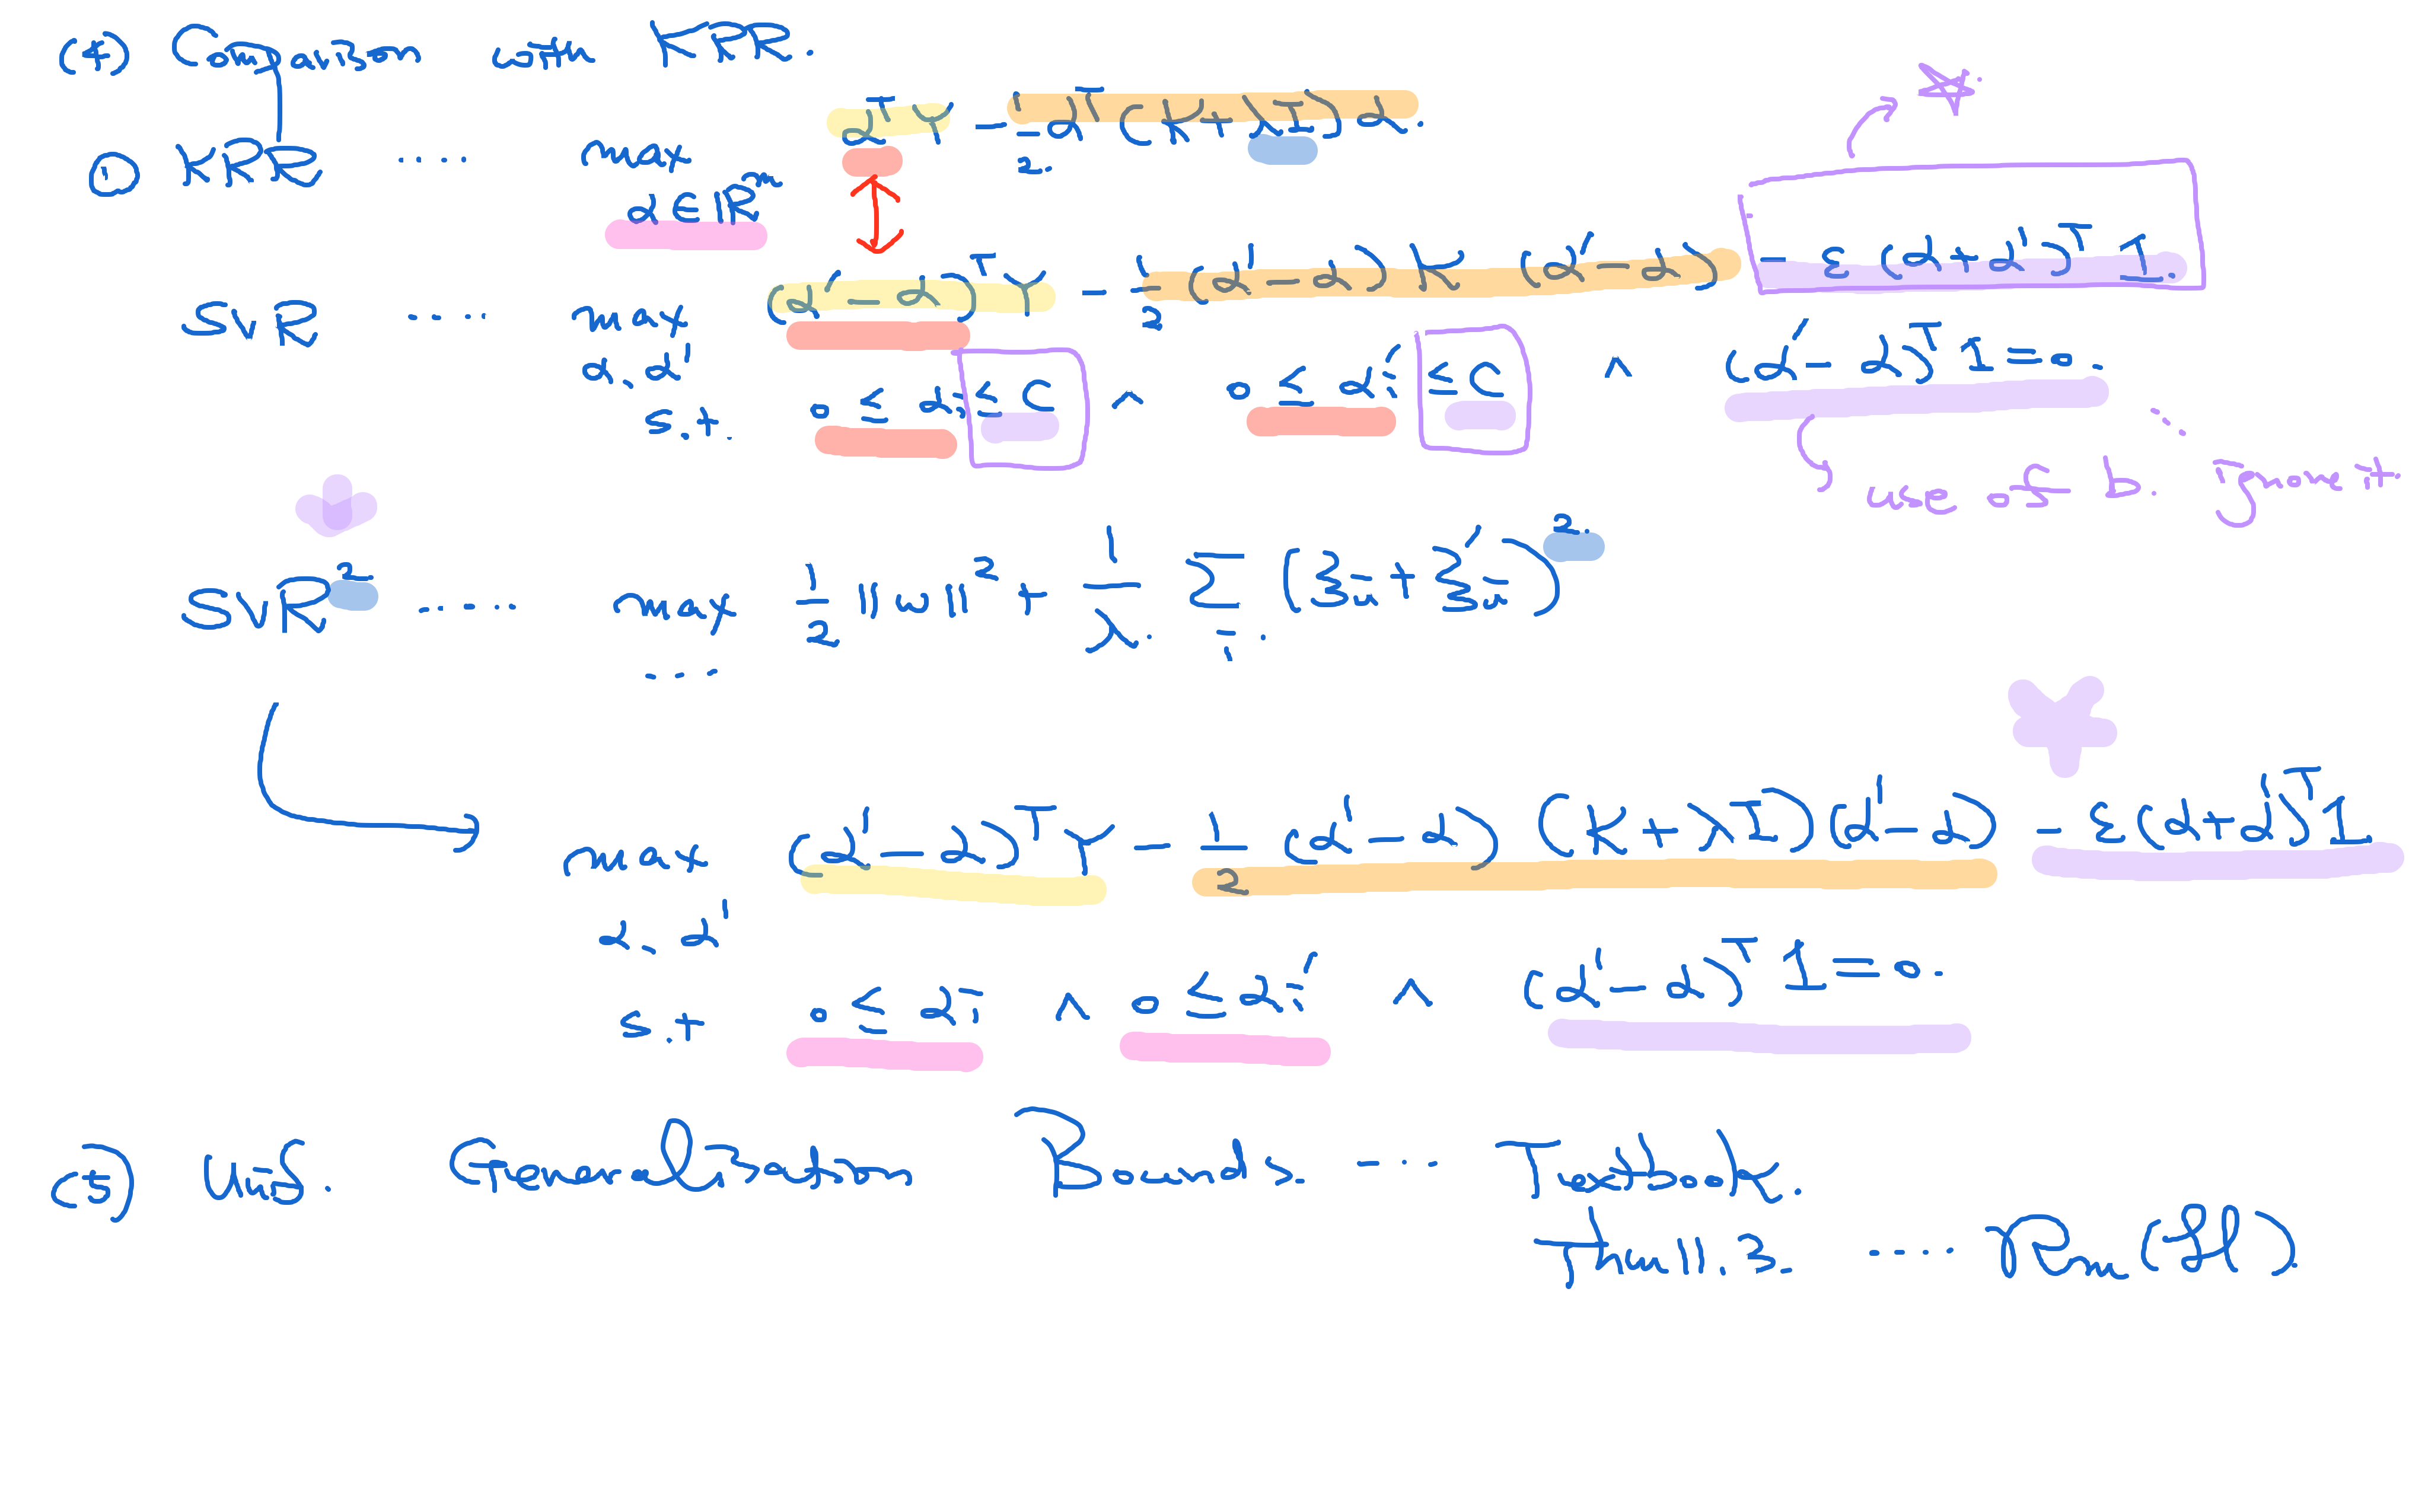 (4) Comparison with KRR.
① KRR .... max α∈ℝᵐ αᵀY - 1/2. αᵀ(K+λI)α.
SVR ..... max α, α' (α'-α)ᵀY - 1/2 (α'-α)K(α'-α) - ε(α+α')ᵀ1.
s.t. 0 ≤ αᵢ ≤ C ∧ 0 ≤ αᵢ' ≤ C ∧ (α'-α)ᵀ1=0.
use of b. Ignore it.
SVR² ..... max 1/2 ||w||² + 1/λ. Σᵢ. (ξᵢ+ξ'ᵢ)².
....
max α, α' (α'-α)ᵀY - 1/2 (α'-α)(K+λI)(α'-α) - ε(α+α')ᵀ1
s.t 0 ≤ αᵢ ∧ 0 ≤ αᵢ' ∧ (α'-α)ᵀ1=0.
Generalisation Bounds ... Textbook.
Thm 11.3. .... ℜm(ℋ).